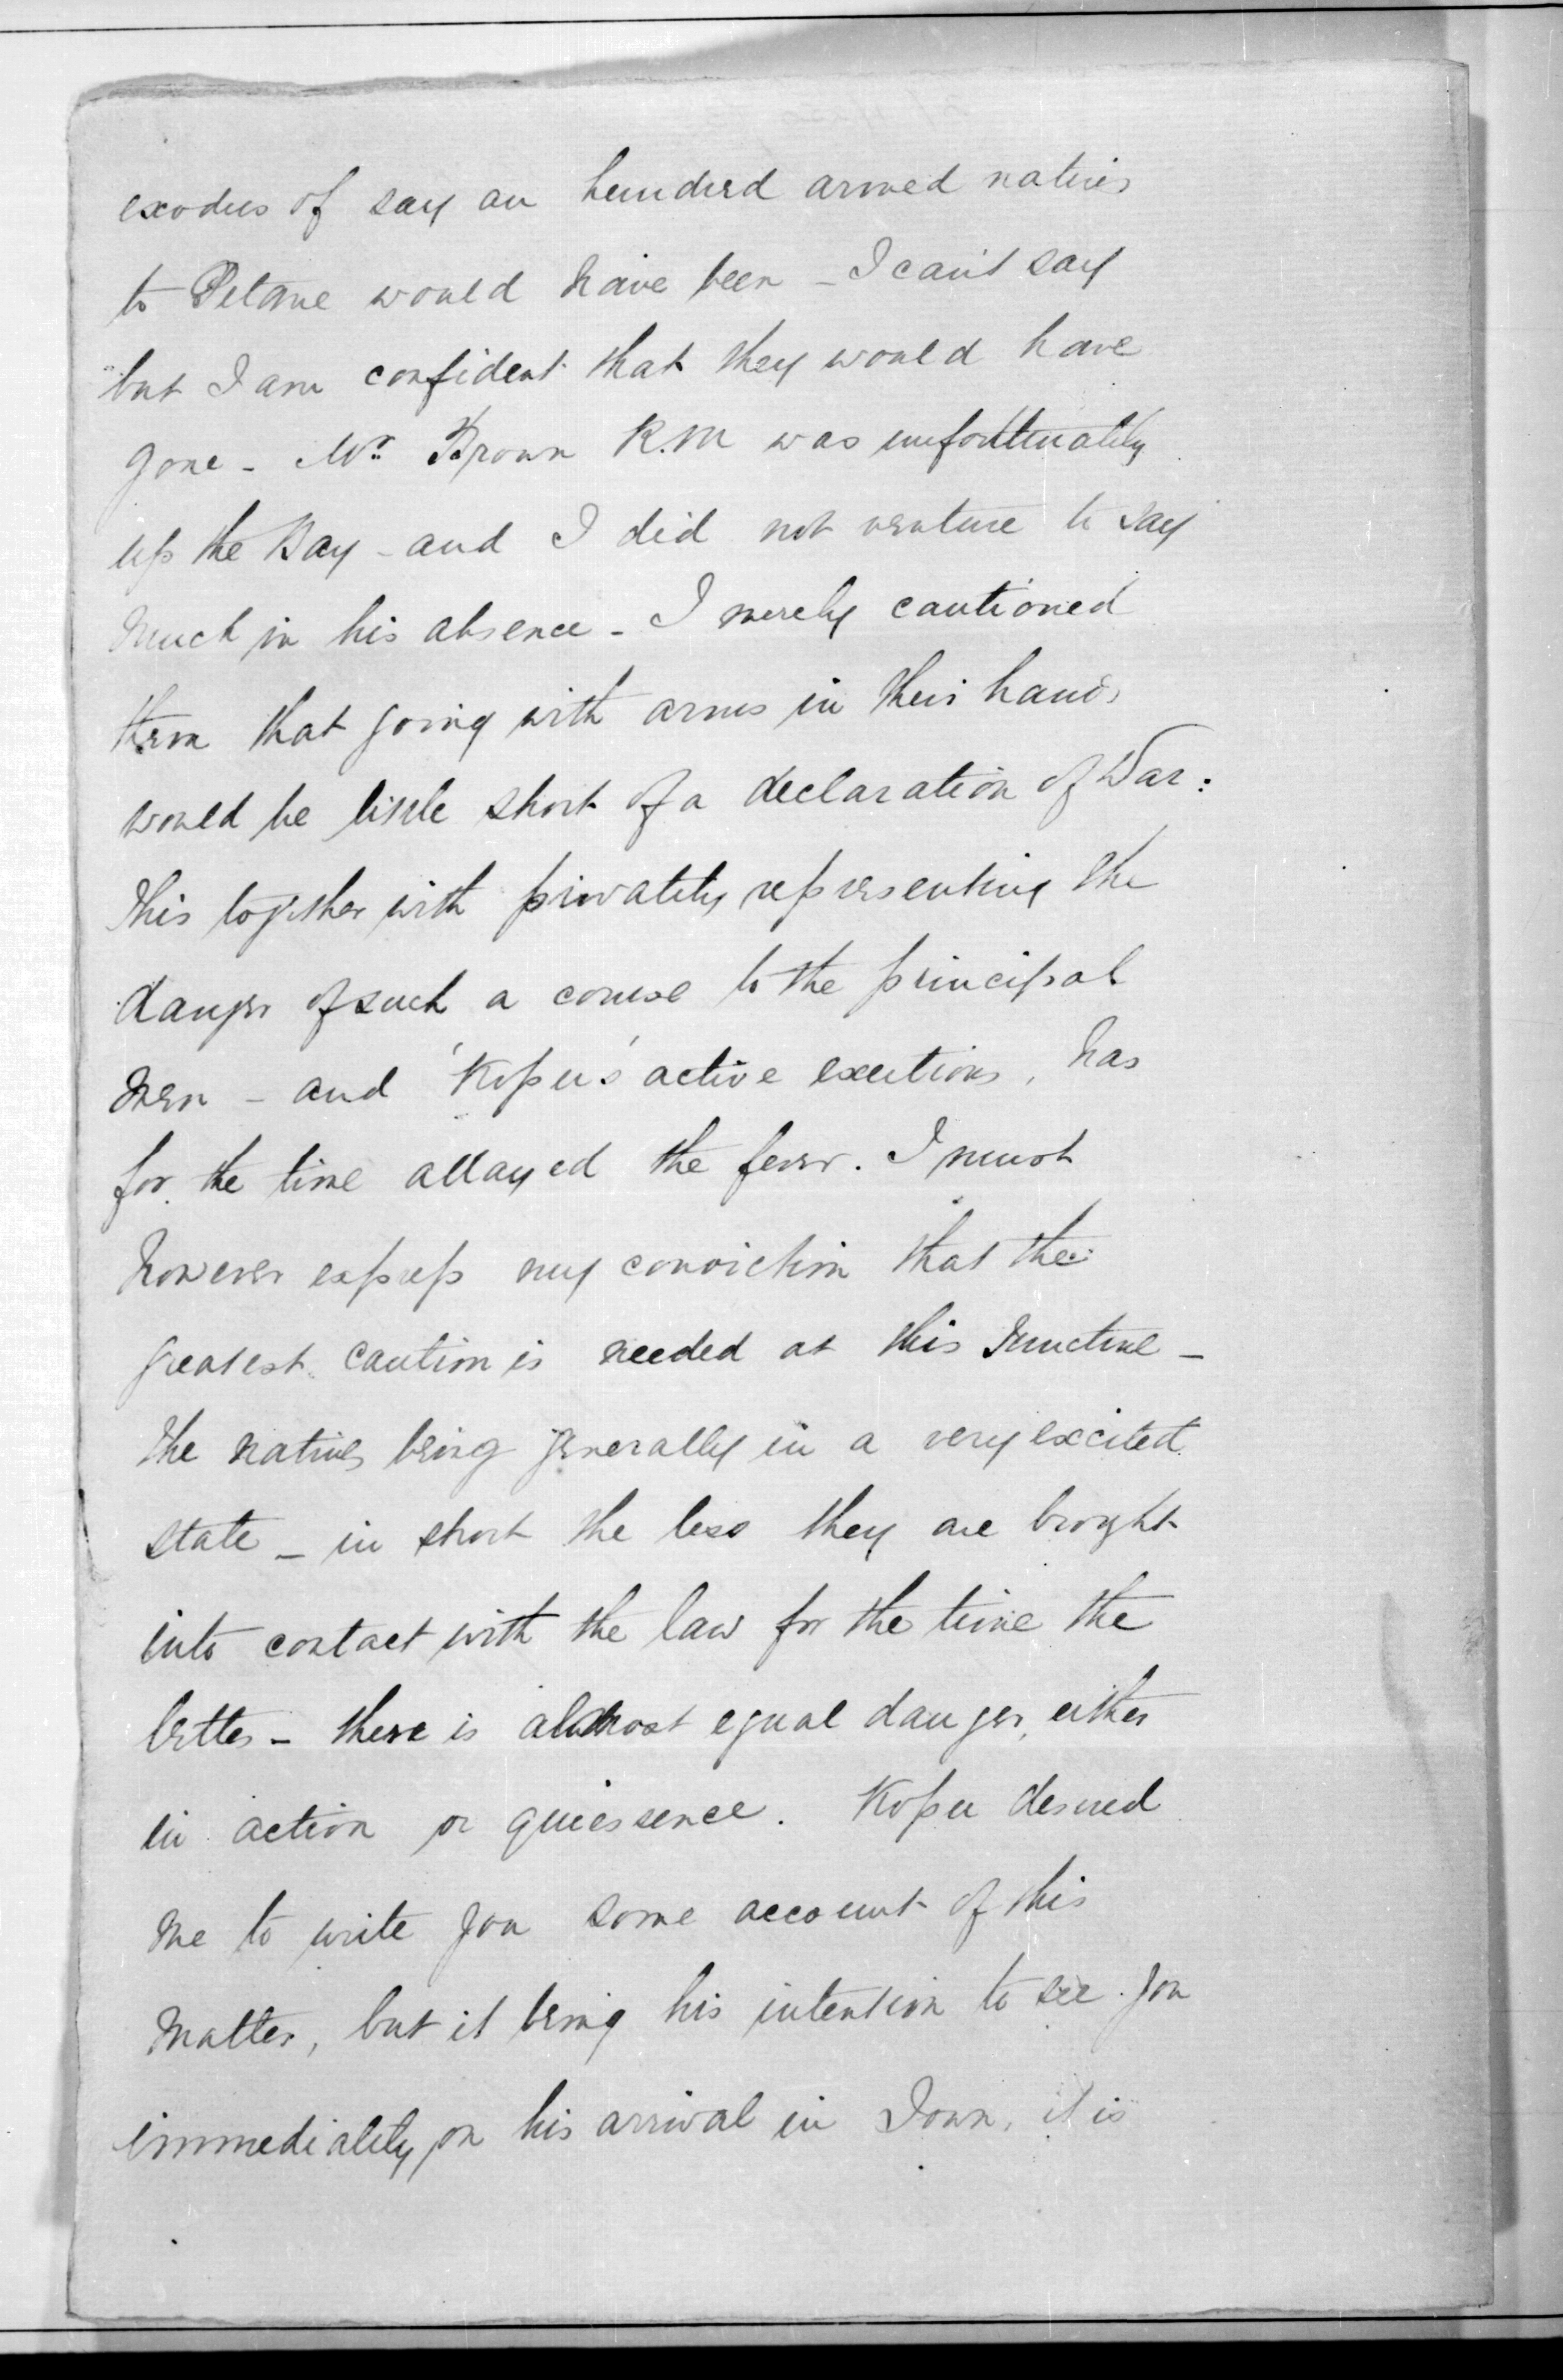 exodus of say an hundred armed natives
to Petane would have been - I can't say
but I am confident that they would have
gone - Mr. Brown R.M was unfortunately
up the Bay - and I did not venture to say
much in his absence - I merely cautioned
them that going with arms in their hands
would be little short of a declaration of War:
this together with privately representing the
danger of such a course to the principal
men - and 'Kopu's' active exertions, has
for the time allayed the fever. I must
however express my conviction that the
greatest caution is needed at this Juncture -
the natives being generally in a very excited
state - in short the less they are brought
into contact with the law for the time the
better - there is almost equal danger, either
in action or quiessence. Kopu desired
me to write you some account of this
matter, but it being his intention to see you
immediately on his arrival in Town, it is